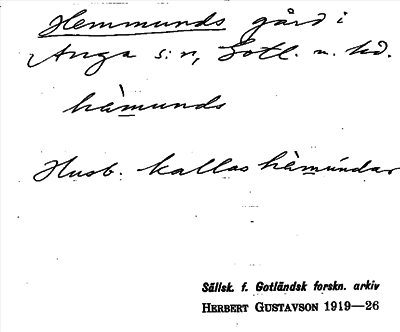 Hemmunds gård i
Anga s:n, Gotl. n. hd.
hàmunds
Husb. kallas hàmúndar
Sällsk. f. Gotländsk forskn. arkiv
HERBERT GUSTAVSON 1919—26